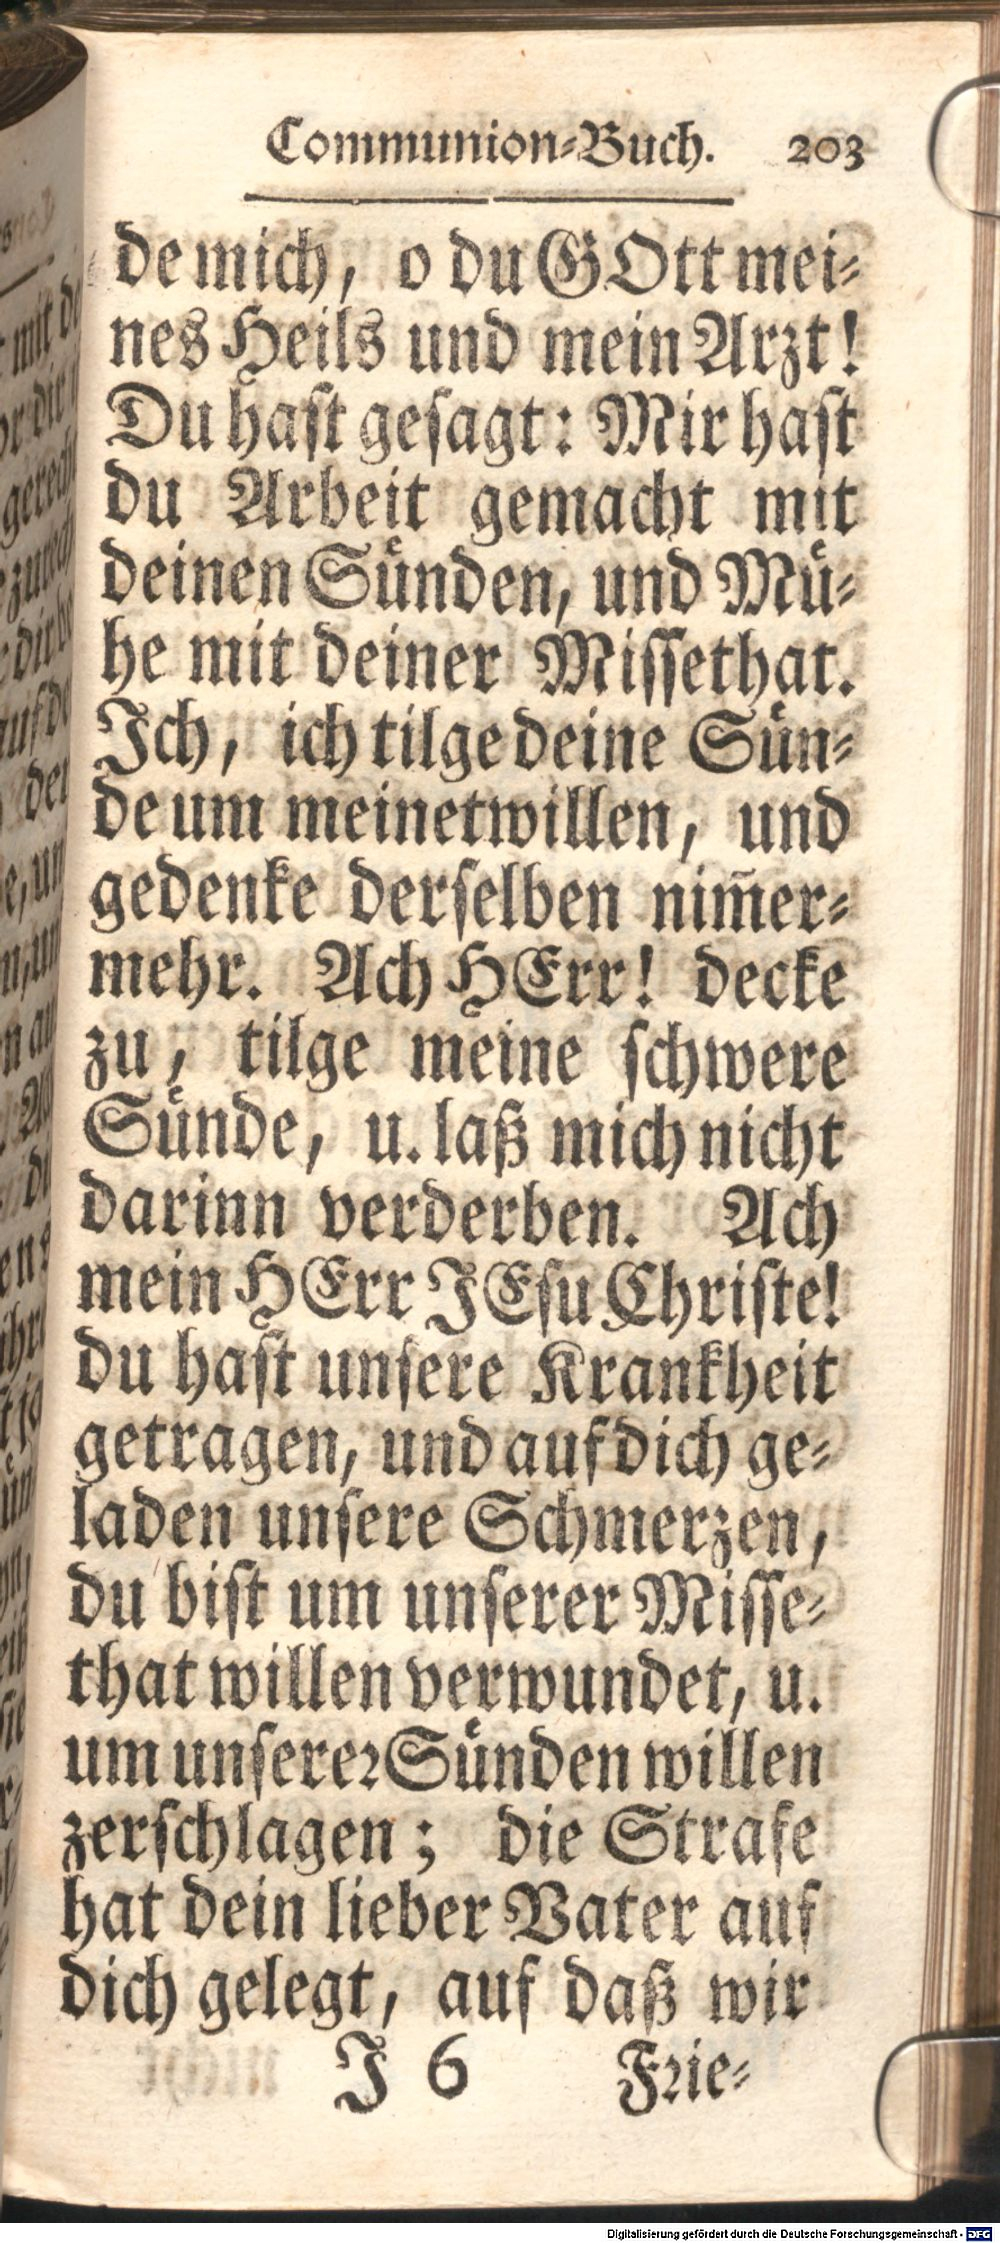 Communion-Buch. 203
de mich, o du GOtt mei-
nes Heils und mein Arzt!
Du hast gesagt: Mir hast
du Arbeit gemacht mit
deinen Sünden, und Mü-
he mit deiner Missethat.
Ich, ich tilge deine Sün-
de um meinetwillen, und
gedenke derselben nim̄er-
mehr. Ach HErr! decke
zu, tilge meine schwere
Sünde, u. laß mich nicht
darinn verderben. Ach
mein HErr JEsu Christe!
du hast unsere Krankheit
getragen, und auf dich ge-
laden unsere Schmerzen,
du bist um unserer Misse-
that willen verwundet, u.
um unserer Sünden willen
zerschlagen; die Strafe
hat dein lieber Vater auf
dich gelegt, auf daß wir
J 6 Frie-
Digitalisierung gefördert durch die Deutsche Forschungsgemeinschaft - DFG